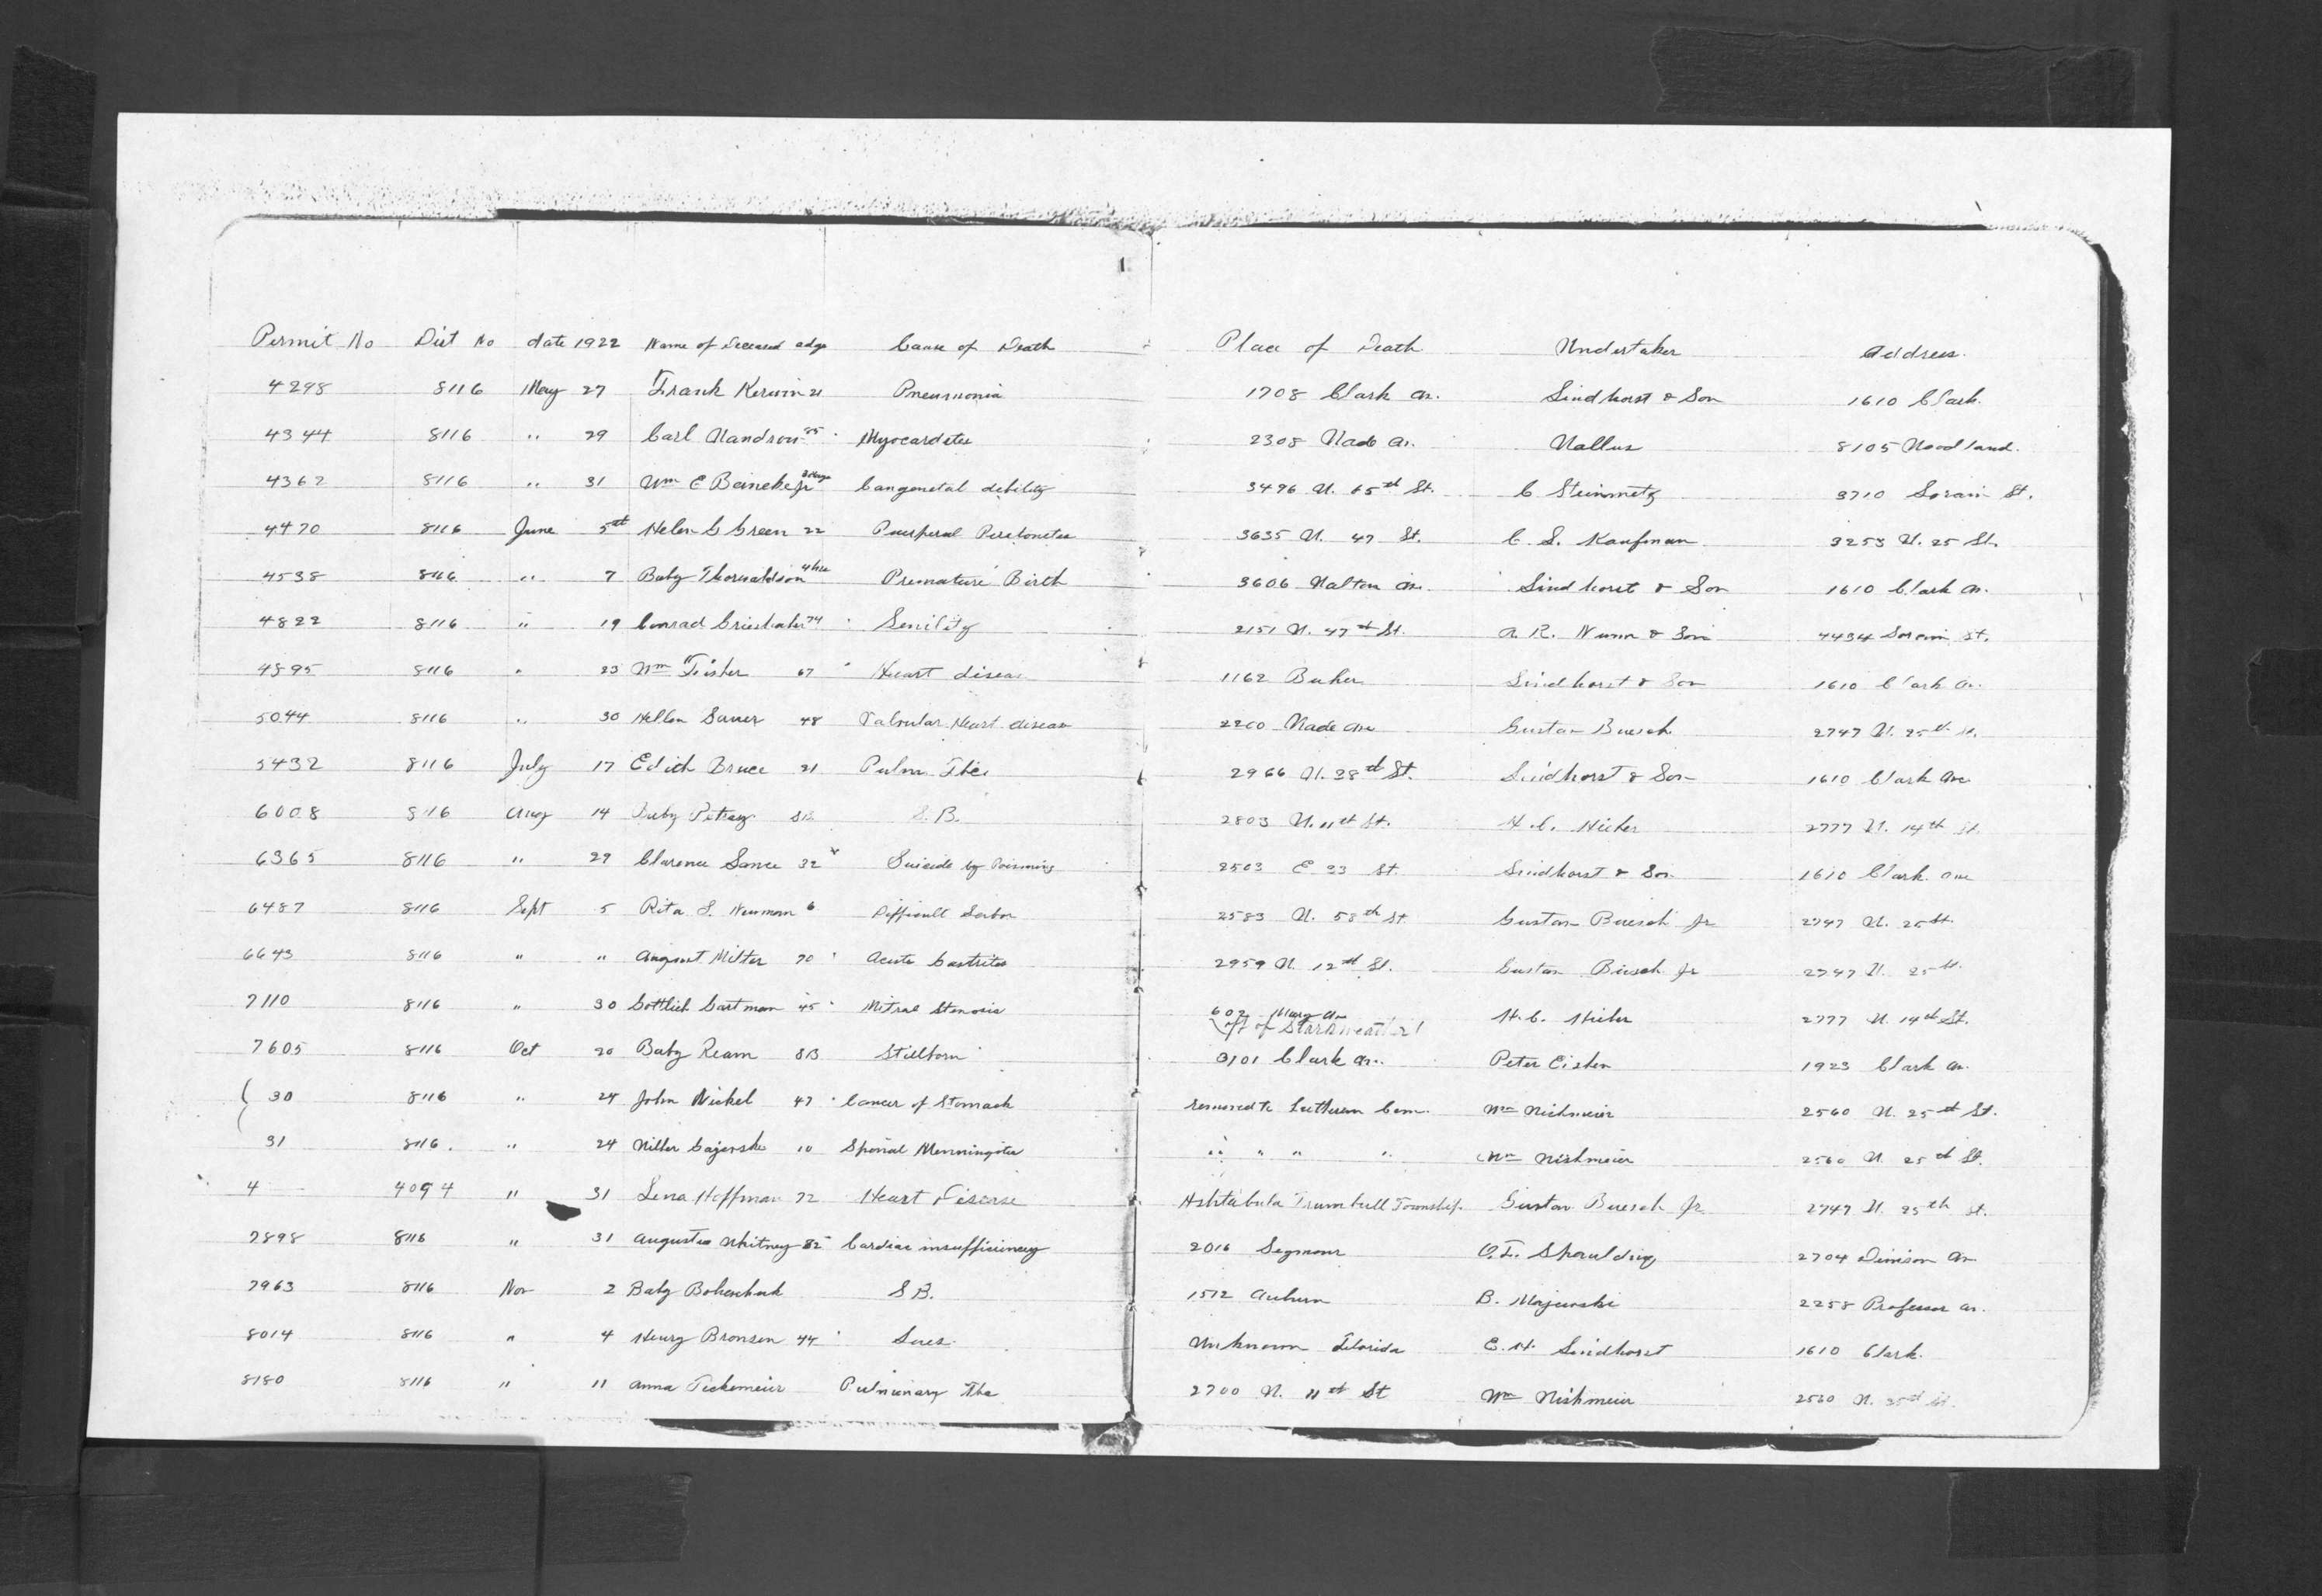 Permit No Dist No date 1922 Name of Deceased adge Cause of Death Place of Death Undertaker Address
4298 8116 May 27 Frank Kerwin 21 Pneumonia 1708 Clark av. Lindhorst & Son 1610 Clark.
4344 8116 " 29 Carl Wandrow 85 Myocardites 2308 Wade av. Wallus 8105 Woodland.
4362 8116 " 31 Wm E Beineke Jr Congenetal debility 3496 W. 65th St. C Steinmetz 3710 Lorain St.
4470 8116 June 5th Helen G Green 22 Puerperal Peretonetes 3635 W. 47 St. C. S. Kaufman 3253 W. 25 St.
4538 8116 " 7 Baby Thorwaldson 4 hrs Premature Birth 3606 Walton av. Lindhorst & Son 1610 Clark av.
4822 8116 " 19 Conrad 74 Senility 2151 W. 47th St. A. R. Nunn & Son 4434 Lorain St.
4895 8116 " 23 Wm Fisher 67 Heart disease 1162 Lindhorst & Son 1610 Clark av.
5044 8116 " 30 Hellen Sauer 48 Valvular Heart disease 2200 Wade ave Gustav Buesch 2747 W. 25th St.
5432 8116 July 17 Edith Bruce 21 Pulm. Tbc. 2966 W. 28th St. Lindhorst & Son 1610 Clark Ave
6008 8116 Aug 14 Baby Petray SB S.B. 2803 W. 11th St. H. C. 2777 W. 14th St.
6365 8116 " 29 Clarence Lance 32 Suicide by Poisoning 2503 E 33 St. Lindhorst & Son 1610 Clark ave
6487 8116 Sept 5 Rita L. Newman 6 Difficult Labor 2583 W. 58th St Gustav Buesch Jr 2747 W. 25 St.
6643 8116 " " August Milter 70 Acute Gastrites 2959 W. 12th St. Gustav Buesch Jr 2747 W. 25 St.
7110 8116 " 30 Gottlieb Gartman 45 Mitral Stenosis 602 Mary Ave H. C. 2777 W. 14th St.
off of Starkweather
7605 8116 Oct 20 Baby Ream SB Stillborn 3101 Clark av. Peter 1923 Clark av.
30 8116 " 24 John Nickel 47 Cancer of Stomach removed to Lutheran Cem. Wm Nishmeier 2560 W. 25th St.
31 8116. " 24 Walter 10 Spinal Menningites " " " " Wm Nishmeier 2560 W. 25th St.
4 4094 " 31 Lena Hoffman 72 Heart Disease Ashtabula Trumbull Township. Gustav Buesch Jr 2747 W. 25th St.
7898 8116 " 31 Augusta Whitney 82 Cardiac insufficiency 2016 Seymour O. F. Spaulding 2704 Denison Av
7963 8116 Nov 2 Baby S B. 1572 Auburn B. Majewski 2258 Professor av.
8014 8116 " 4 Henry Bronsen 44 Lues. Unknown Florida E. H. Lindhorst 1610 Clark.
8180 8116 " 11 Anna Teckemeier Pulmonary Tbc 2700 W. 11th St Wm Nishmeier 2560 W. 25th St.